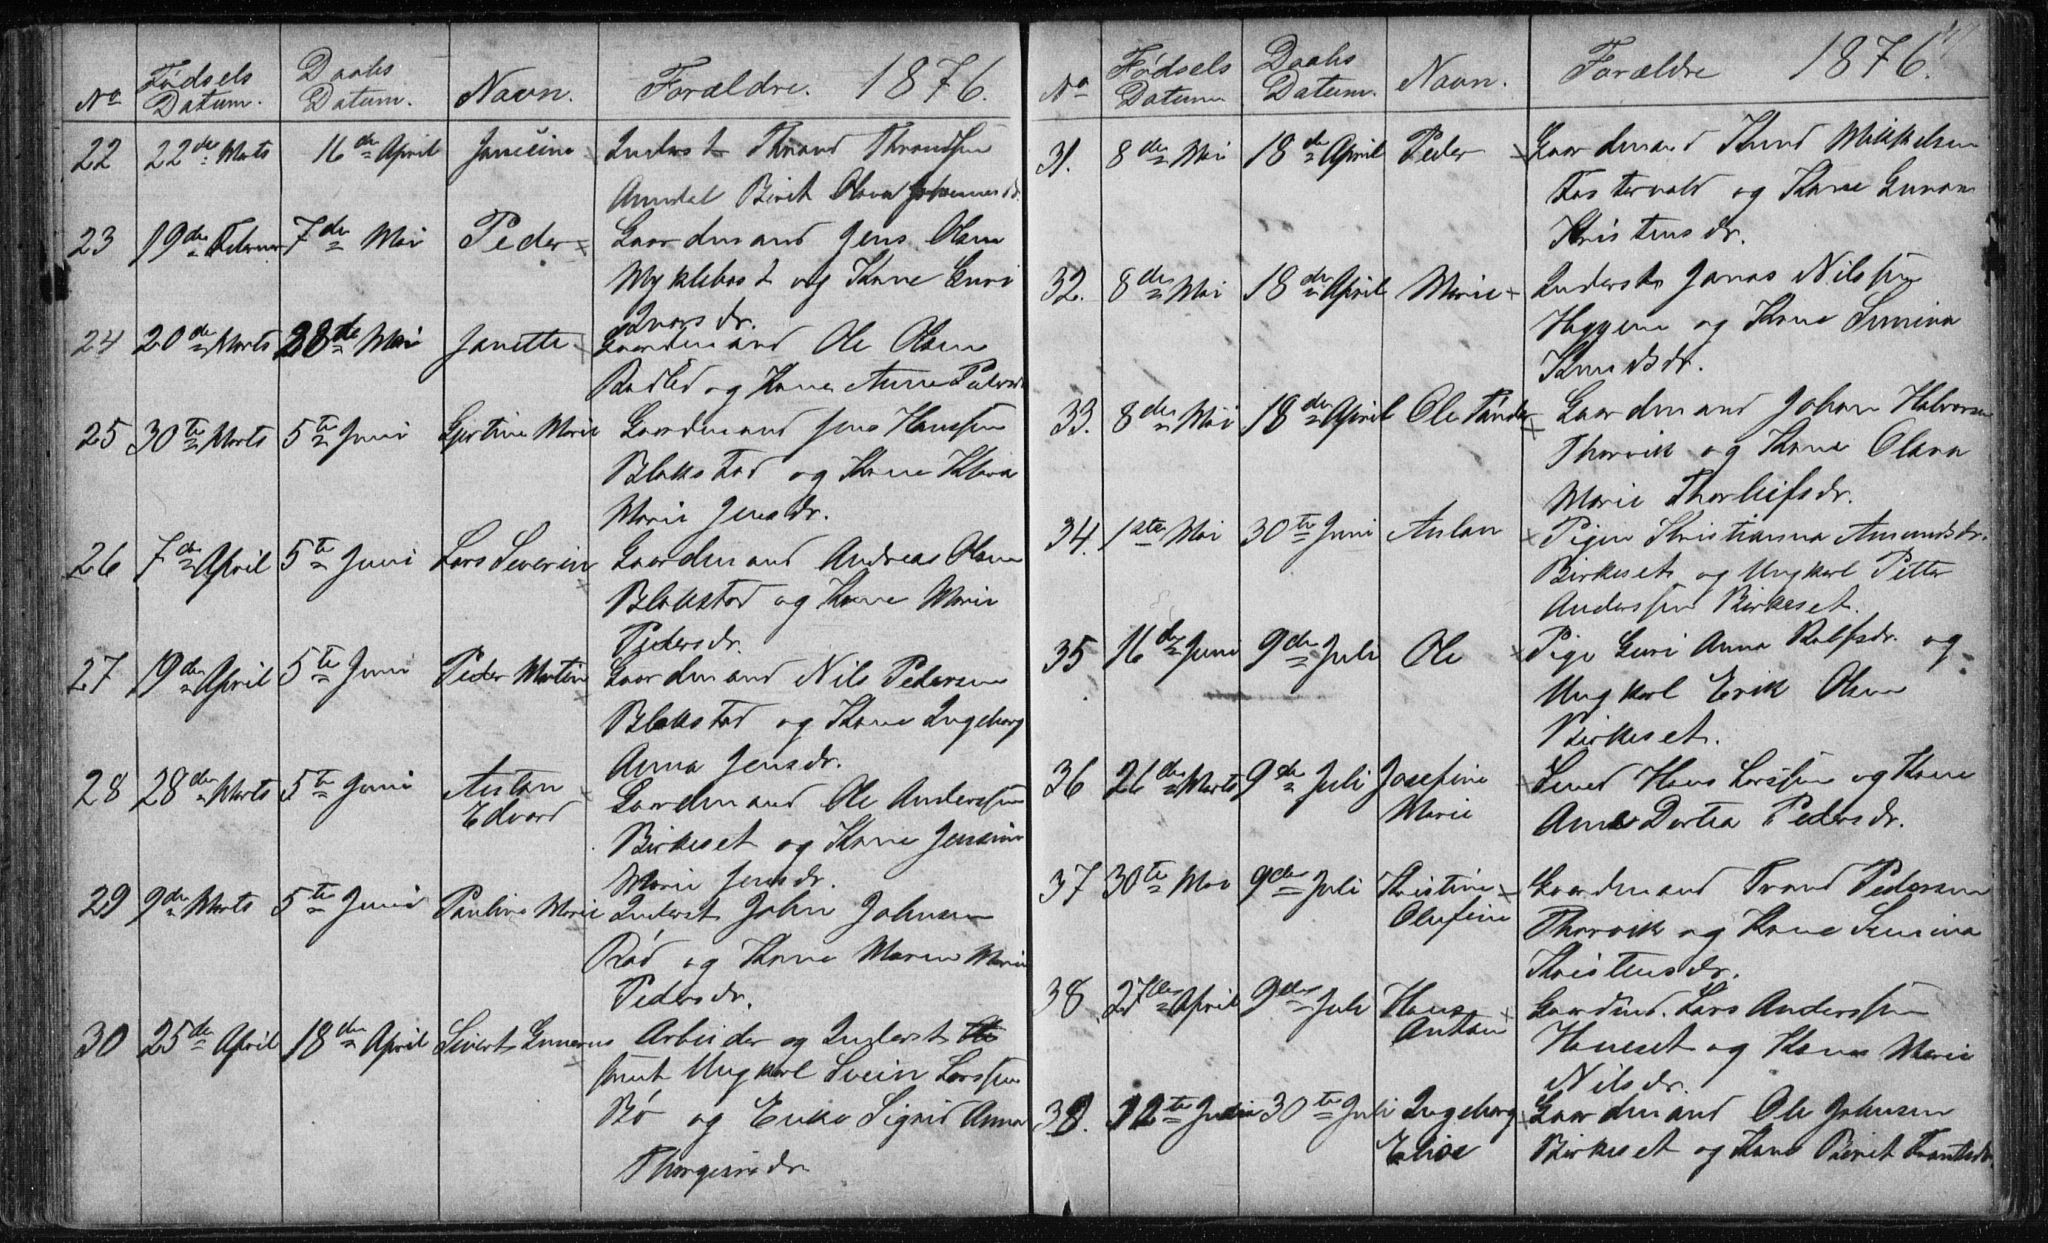 No Fødsels Datum. Daabs Datum. Navn. Forældre. 1876.
22 22de Marts 16de April Jensine Inderst Thrand Thrandsen
Aandal Birit Olava Johannesdr.
23 19de Februar 7de Mai Peder Gaardmand Jens Olsen
Myklebost og Kone Guri
Ivarsdr.
24 20de Marts 28de Mai Janette Gaardmand Ole Olsen
Rødled og Kone Anne Pedersdr
25 30te Marts 5te Juni Gjertine Marie Gaardmand Jens Hanssen
Blakstad og Kone
Marie Jensdr.
26 7de April 5te Juni Lars Severin Gaardmand Andreas Olsen
Blakstad og Kone Marie
Pedersdr.
27 19de April 5te Juni Peder Martin Gaardmand Nils Pedersen
Blakstad og Kone Ingeborg
Anna Jensdr.
28 28de Marts 5te Juni Anton Gaardmand Ole Anderssen
Edvard
Birkeset og Kone Jensine
Marie Jensdr.
29 9de Marts 5te Juni Pauline Marie Inderst John Johnsen
Rød og Kone Maren Marie
Pedersdr.
30 25de April 18de April Sivert Gunerus Arbeider og Inderst
samt Ungkarl Svein Larssen
Bø og Enke Sigrid Anna
No Fødsels Datum Daabs Datum. Navn. Forældre 1876.
31. 8de Mai 18de April Peder Gaardmand Knud Mikkelsen
Fastervold og Kone Gunan
Kristensdr.
32. 8de Mai 18de April Marie Inderst Jonas Nilssen
Haggem og Kone
Knudsdr.
33. 8de Mai 18de April Ole Gaardmand Johan Halvorsen
Thorvik og Kone Olava
Marie Thorleifsdr.
34. 1ste Mai 30te Juni Anton Pigen Kristianna Amundsdr.
Birkeset og Ungkarl Petter
Anderssen Birkeset.
35 16de Juni 9de Juli Ole Pige Guri Anna Rolfsdr. og
Ungkarl Erik Olsen
Birkeset.
36 26de Marts 9de Juli Josefine Hans Larssen og Kone
Marie Ane Dortea Pedersdr.
37 30te Mai 9de Juli Kristine Gaardmand Trond Pedersen
Olufine Thorvik og Kone
Kristensdr.
38. 27de April 9de Juli Hans Gaardmd. Lars Anderssen
Anton Haneset og Kone Marie
Nilsdr.
39. 12te 30te Juli Ingeborg Gaardmand Ole Johnsen
Elise Birkeset og Kone Berit